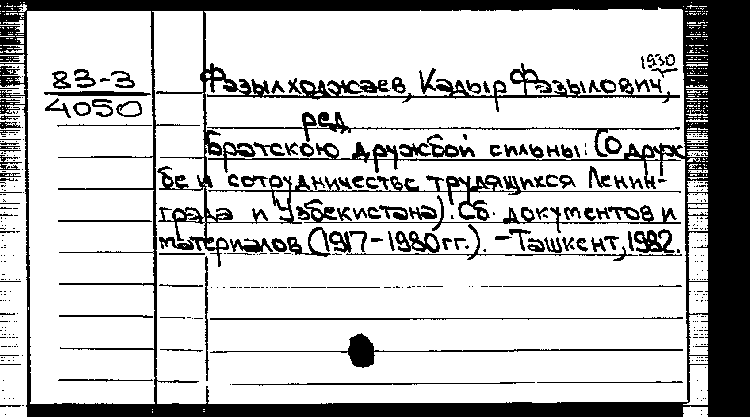 1930
83-3
4050
Фазылходжаев, Кадыр Фазылович,
ред.
Братскою дружбой сильны: (О друж
бе и сотрудничестве трудящихся Ленин-
града и Узбекистана). Сб. документов и
материалов (1917-1980 гг.). - Ташкент, 1982.